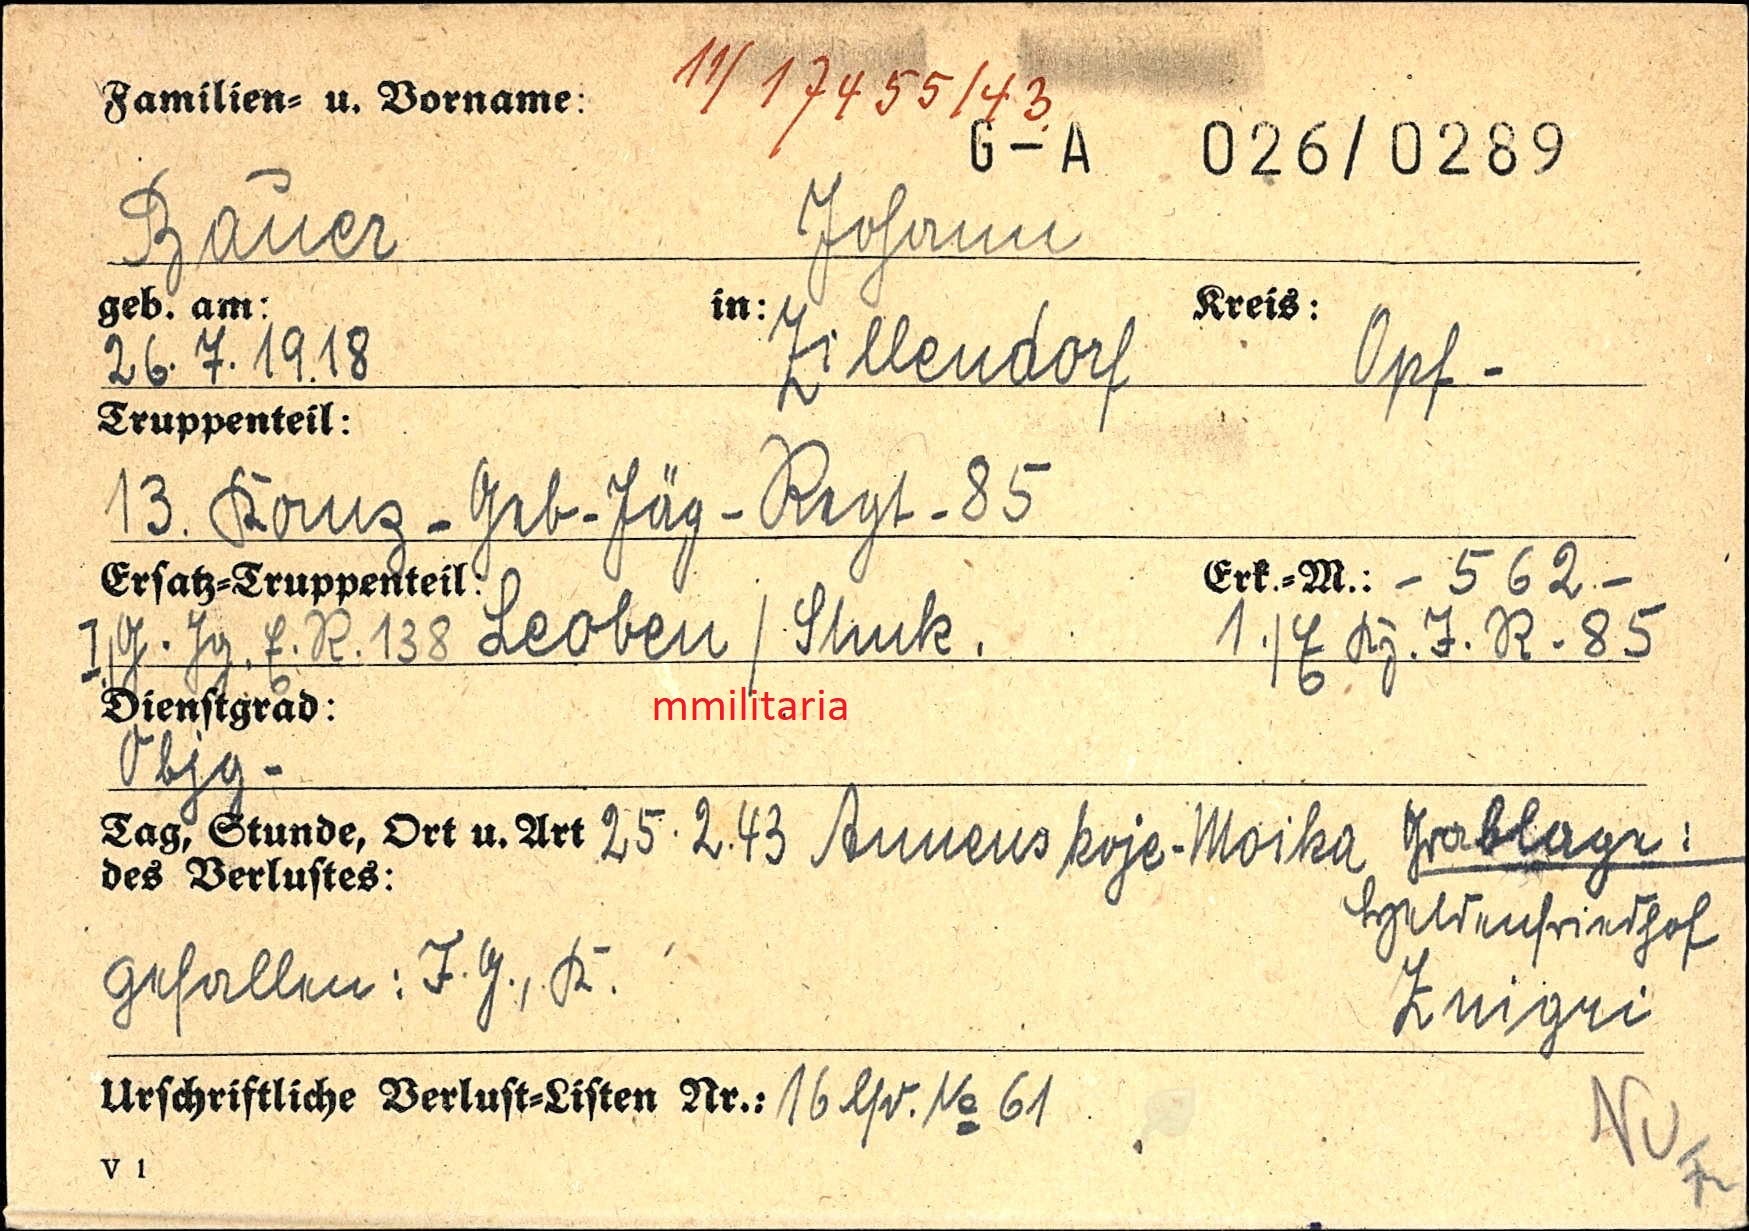 11/17455/43
Familien- u. Vorname:
G-A 026/0289
Bauer Johann
geb. am: in: Kreis:
26.7.1918 Zillendorf Opf -
Truppenteil:
13. Komp - Geb-Jäg - Regt - 85
Ersatz-Truppenteil: Erk.-M.: - 562 -
I/G. Jg. E. R. 138 Leoben / 1./E Kp. J. R. 85
Dienstgrad:
mmilitaria
Objg -
Tag, Stunde, Ort u. Art 25.2.43 Annenskoje-Moika Grablage:
des Verlustes:
Heldenfriedhof
gefallen: I.G., K.
Znigri
Urschriftliche Verlust-Listen Nr.: 16 lfd. No 61
V 1